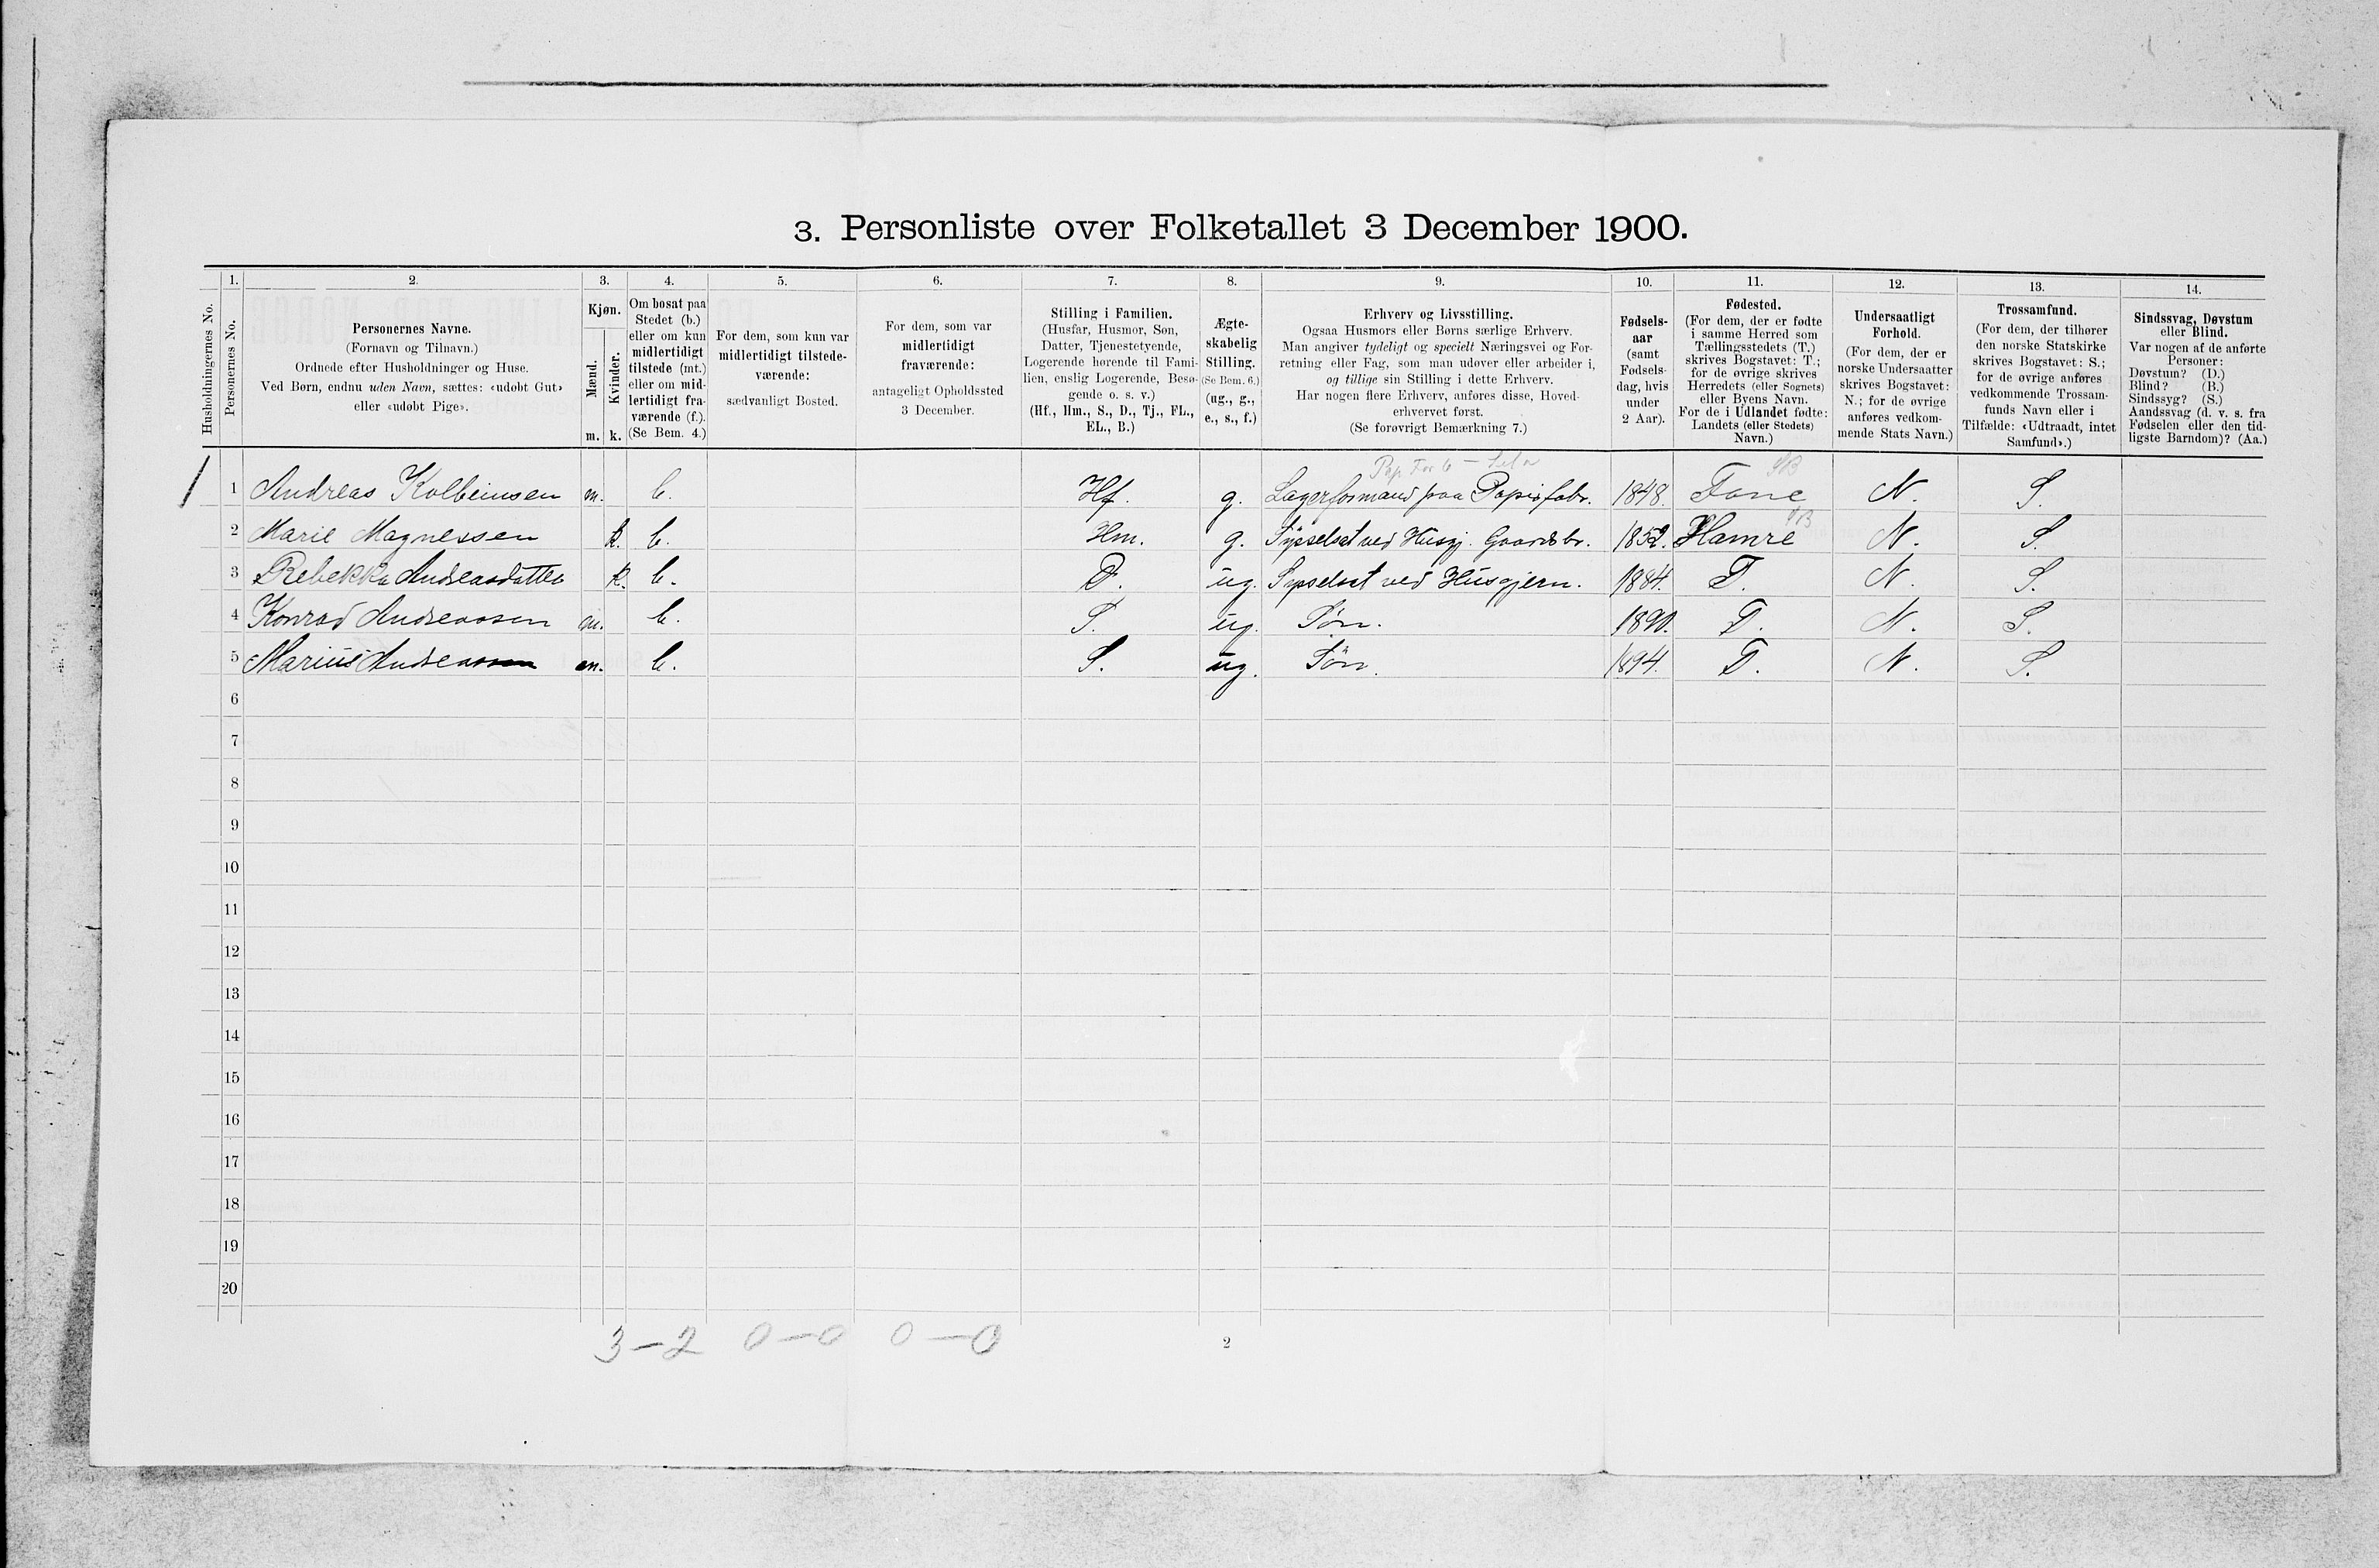 3. Personliste over Folketallet 3 December 1900.
Husholdningernes No.
1. Personernes No.
2. Personernes Navne.
(Fornavn og Tilnavn.)
Ordnede efter Husholdninger og Huse.
Ved Børn, endnu uden Navn, sættes: «udøbt Gut»
eller «udøbt Pige».
3. Kjøn.
Mænd. Kvinder.
m. k.
4. Om bosat paa
Stedet (b.)
eller om kun
midlertidigt
tilstede (mt.)
eller om mid-
lertidigt fra-
værende (f.).
(Se Bem. 4.)
5. For dem, som kun var
midlertidigt tilstede-
værende:
sædvanligt Bosted.
6. For dem, som var
midlertidigt
fraværende:
antageligt Opholdssted
3 December.
7. Stilling i Familien.
(Husfar, Husmor, Søn,
Datter, Tjenestetyende,
Logerende hørende til Fami-
lien, enslig Logerende, Besø-
gende o. s. v.)
(Hf., Hm., S., D., Tj., FL.,
EL., B.)
8. Ægte-
skabelig
Stilling.
(Se Bem. 6.)
(ug., g.,
e., s., f.)
9. Erhverv og Livsstilling.
Ogsaa Husmors eller Børns særlige Erhverv.
Man angiver tydeligt og specielt Næringsvei og For-
retning eller Fag, som man udøver eller arbeider i,
og tillige sin Stilling i dette Erhverv.
Har nogen flere Erhverv, anføres disse, Hoved-
erhvervet først.
(Se forøvrigt Bemærkning 7.)
10. Fødsels-
aar
(samt
Fødsels-
dag, hvis
under
2 Aar).
11. Fødested.
(For dem, der er fødte
i samme Herred som
Tællingsstedets (T.)
skrives Bogstavet: T.;
for de øvrige skrives
Herredets (eller Sognets)
eller Byens Navn.
For de i Udlandet fødte:
Landets (eller Stedets)
Navn.)
12. Undersaatligt
Forhold.
(For dem, der er
norske Undersaatter
skrives Bogstavet:
N.; for de øvrige
anføres vedkom-
mende Stats Navn.)
13. Trossamfund.
(For dem, der tilhører
den norske Statskirke
skrives Bogstavet: S.;
for de øvrige anføres
vedkommende Trossam-
funds Navn eller i
Tilfælde: «Udtraadt, intet
Samfund».)
14. Sindssvag, Døvstum
eller Blind.
Var nogen af de anførte
Personer:
Døvstum? (D.)
Blind? (B.)
Sindssyg? (S.)
Aandssvag (d. v. s. fra
Fødselen eller den tid-
ligste Barndom)? (Aa.)
SB
1 1 Andreas Kolbeinsen m. b. Hf. g. Lagerformand paa Papirfabr. 1848. Fane N. S.
SB
2 Marie Magnessen k. b. Hm. g. Sysselsat ved Husgj. Gaardsbr. 1852. Hamre N. S.
3 Rebekka Andreasdatter k. b. D. ug. Sysselsat ved Husgjern. 1884. T. N. S.
4 Konrad Andreassen m. b. S. ug. Søn. 1890. T. N. S.
5 Marius Andreassen m. b. S. ug. Søn. 1894. T. N. S.
6
7
8
9
10
11
12
13
14
15
16
17
18
19
20
3-2 0-0 0-0
2